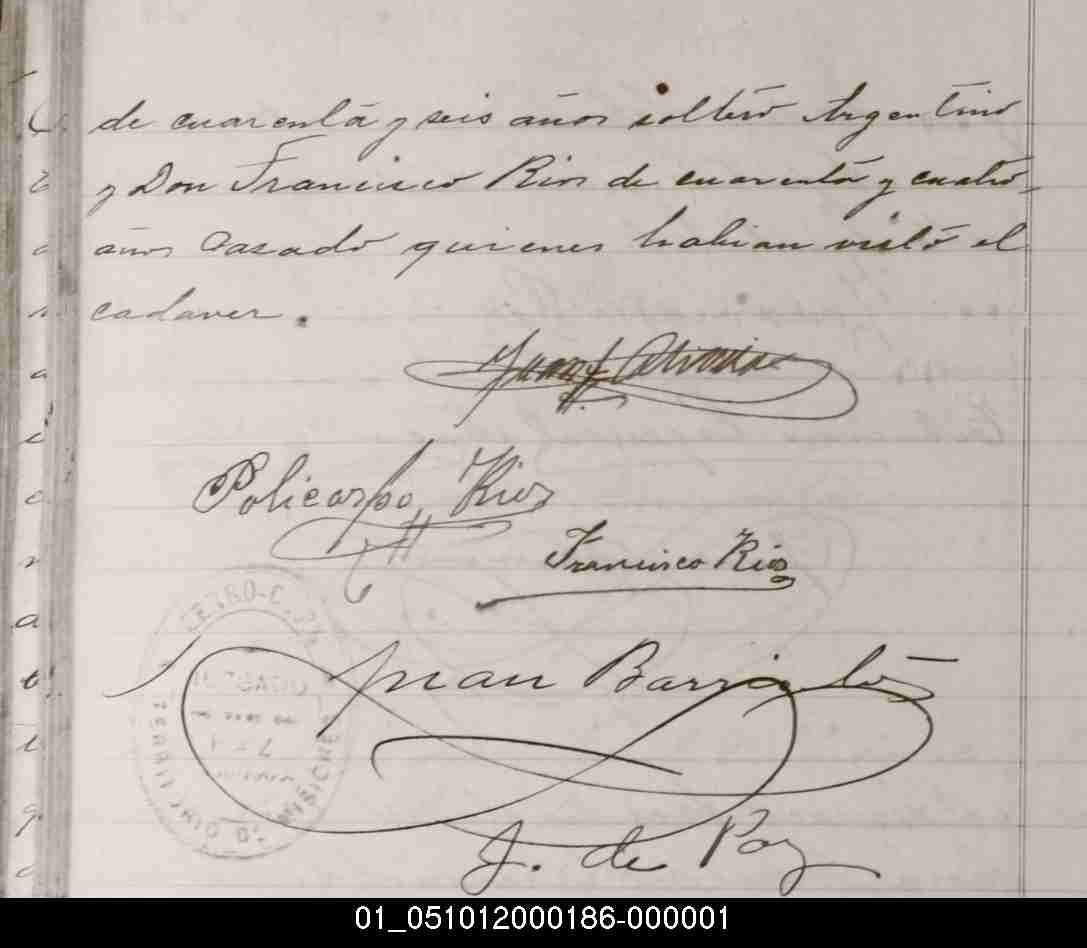 de cuarenta y seis años soltero Argentino
y Don Francisco Rios de cuarenta y cuatro
años Casado quienes habian visto el
cadaver.
Juan
Policarpo Rios
Francisco Rios
Juan Barrientos
J. de Paz
JUZGADO
01_051012000186-000001